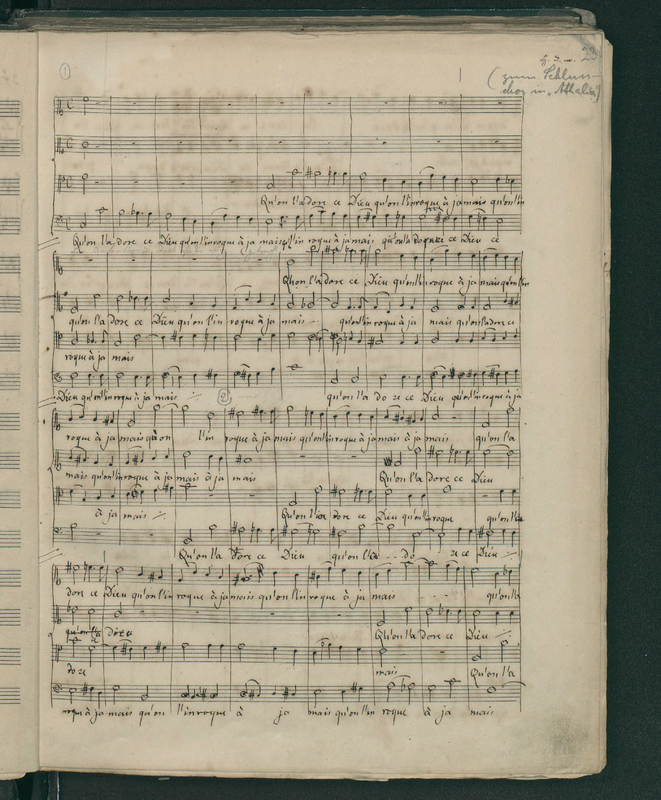 23
(zum Schluss-
chor in "Athalia")
1
Qu'on l'adore ce Dieu qu'on l'invoque à jamais qu'on l'in
Qu'on l'a dore ce Dieu qu'on l'invoque à ja mais qu'on l'in voque à jamais qu'on l'a dore ce Dieu ce
Qu'on l'adore ce Dieu qu'on l'invoque à ja mais qu'on l'in
qu'on l'a dore ce Dieu qu'on l'in voque à ja mais qu'on l'in voque à ja mais qu'on l'adore ce
voque à ja mais
Dieu qu'on l'invoque à ja mais qu'on l'a do re ce Dieu qu'on l'invoque à ja
2
voque à ja mais qu'on l'in voque à ja mais qu'on l'invoque à jamais à ja mais qu'on l'a
mais qu'on l'invoque à ja mais à ja mais Qu'on l'a dore ce Dieu
à ja mais Qu'on l'a dore ce Dieu qu'on l'invoque qu'on l'in
Qu'on l'a dore ce Dieu qu'on l'a do re ce Dieu
dore ce Dieu qu'on l'in voque à jamais qu'on l'in voque à ja mais qu'on l'a
qu'on l'a dore Qu'on l'a dore ce Dieu
do re mais Qu'on l'a
voque à ja mais qu'on l'invoque à ja mais qu'on l'in voque à ja mais